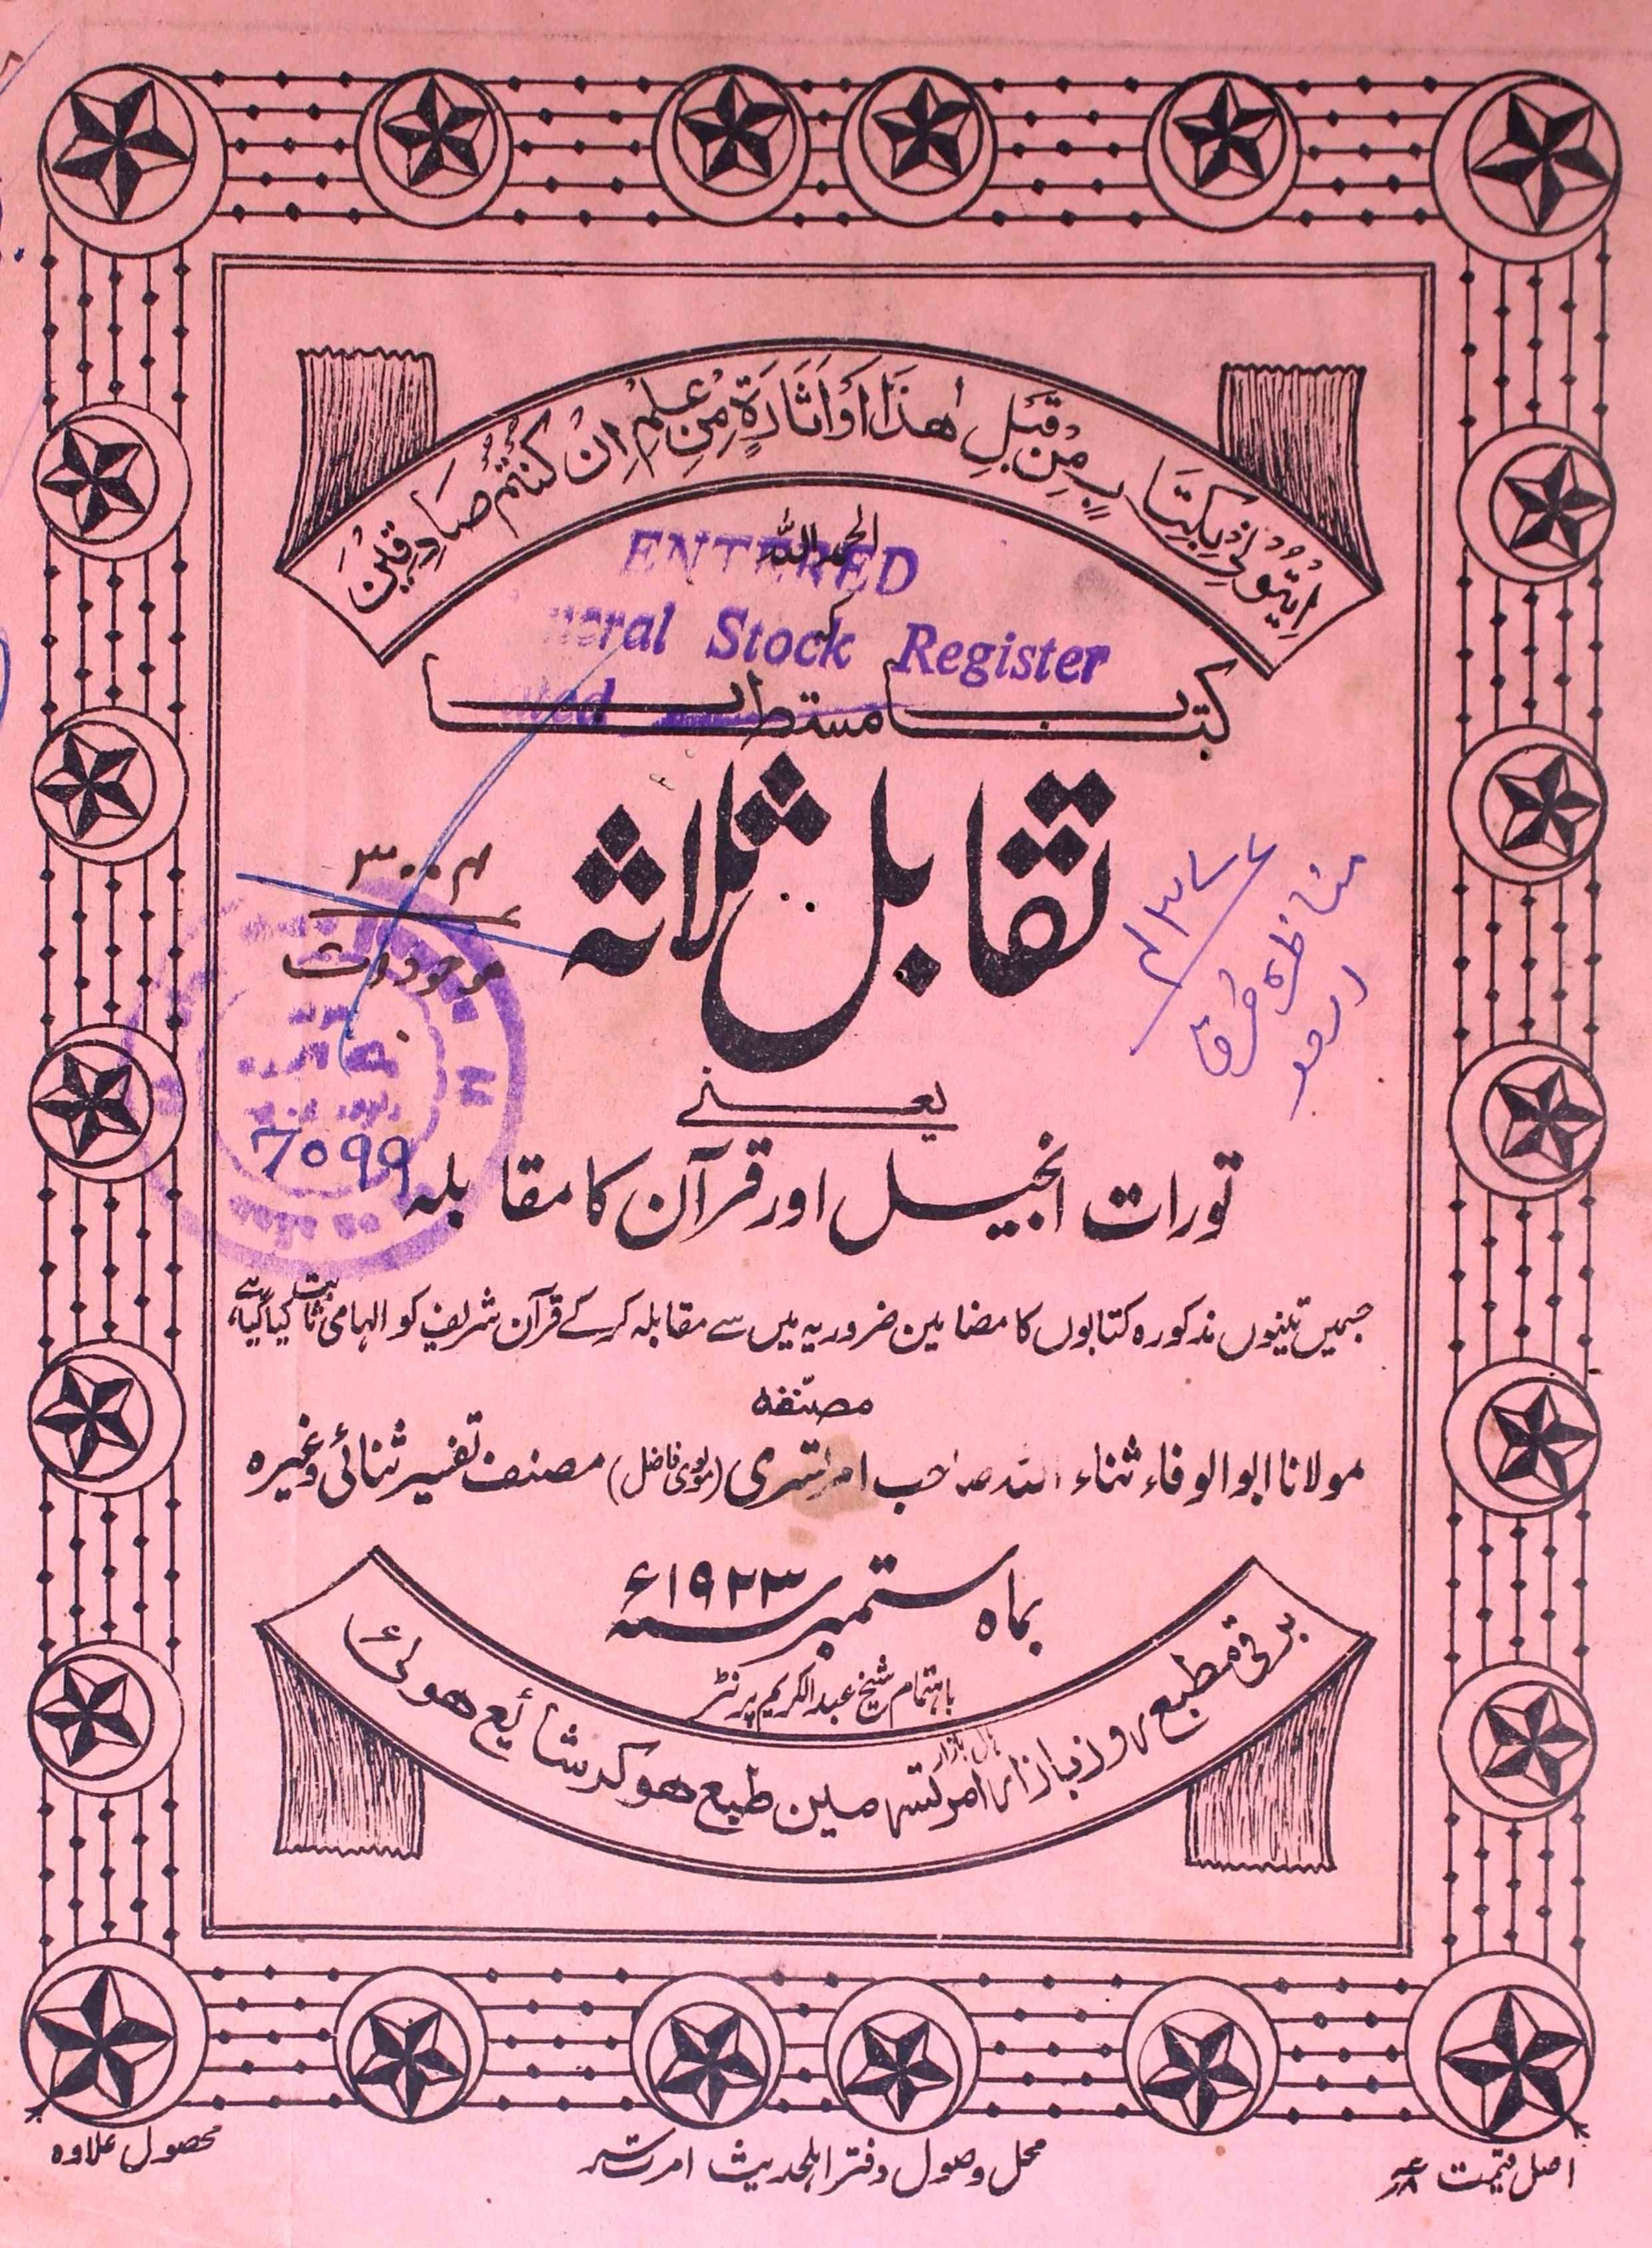 اِیتُونِی بِکِتَابٍ مِنْ قَبْلِ هٰذَا اَوْ اَثَارَةٍ مِنْ عِلْمٍ اِنْ کُنْتُمْ صَادِقِیْنَ
الحمد للہ
ENTERED
Stock Register
کہ
کتاب مستطاب
تقابل ثلاثہ
۳۰۰۴
موجودات
مناظرہ
اردو
7099
یعنے
تورات انجیل اور قرآن کا مقابلہ
جسمیں تینوں مذکورہ کتابوں کا مضامین ضروریہ میں سے مقابلہ کرکے قرآن شریف کو الہامی ثابت کیا گیا ہے
مصنفہ
مولانا ابو الوفاء ثناء اللہ صاحب امرتسری (مولوی فاضل) مصنف تفسیر ثنائی وغیرہ
بماہ ستمبر سنہ ۱۹۲۳ء
باہتمام شیخ عبد الکریم پرنٹر
برقی مطبع روز بازار ہال بازار امرتسر مین طبع ھوکر شائع ھوئی
اصل قیمت
محل وصول دفتر اہلحدیث امرتسر
محصول علاوہ